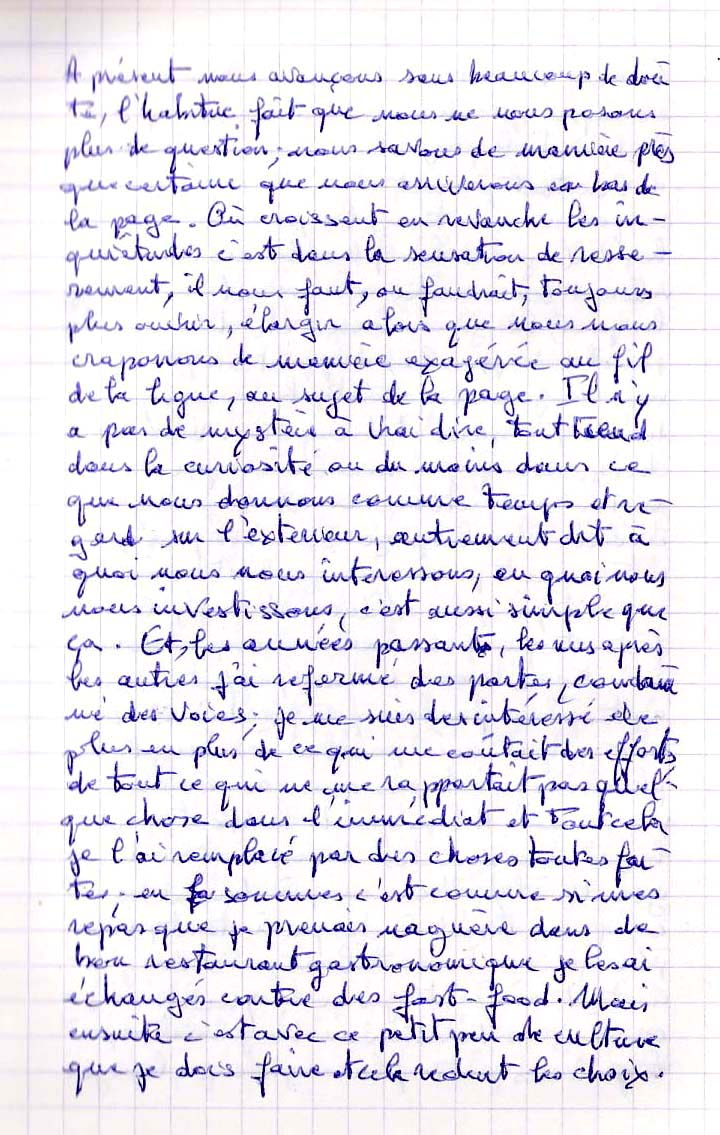 A présent nous avançons sans beaucoup de dou
te, l'habitue fait que nous ne nous posons
plus de question; nous savons de manière près
que certaine que nous arriverons en bas de
la page. Où croissent en revanche les in-
quiétudes c'est dans la sensation de resse-
rement, il nous faut, ou faudrait, toujours
plus ouvrir, élargir alors que nous nous
craponons de manière exagérée au fil
de la ligne, au sujet de la page. Il n'y
a pas de mystère à vrai dire, tout tiend
dans la curiosité ou du moins dans ce
que nous donnons comme temps et re-
gard sur l'exterieur, autrement dit à
quoi nous nous interessons, en quoi nous
nous investissons, c'est aussi simple que
ça. Et, les années passants, les unes après
les autres j'ai refermé des portes, condam
né des voies; je me suis desintéressé de
plus en plus de ce qui me coûtait des efforts,
de tout ce qui ne me rapportait pas quel-
que chose dans l'immédiat et tout cela
je l'ai remplacé par des choses toutes fai-
tes; en sommes c'est comme si mes
repas que je prenais naguère dans de
bon restaurant gastronomique je les ai
échangés contre des fast-food. Mais
ensuite c'est avec ce petit peu de culture
que je dois faire et cela reduit les choix.